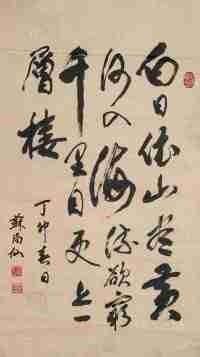 白日依山尽黄
河入海流欲窮
千里目更上一
層樓
丁卯春日
蘇局仙